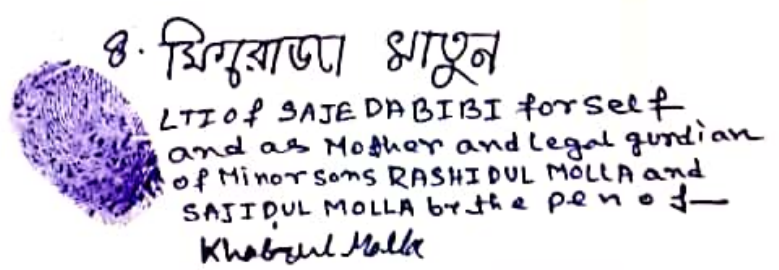 ৪. মিনুরাজা খাতুন
LTI of SAJEDA BIBI for self
and as Mother and Legal gurdian
of Minor sons RASHIDUL MOLLA and
SAJIDUL MOLLA by the pen of
Molla